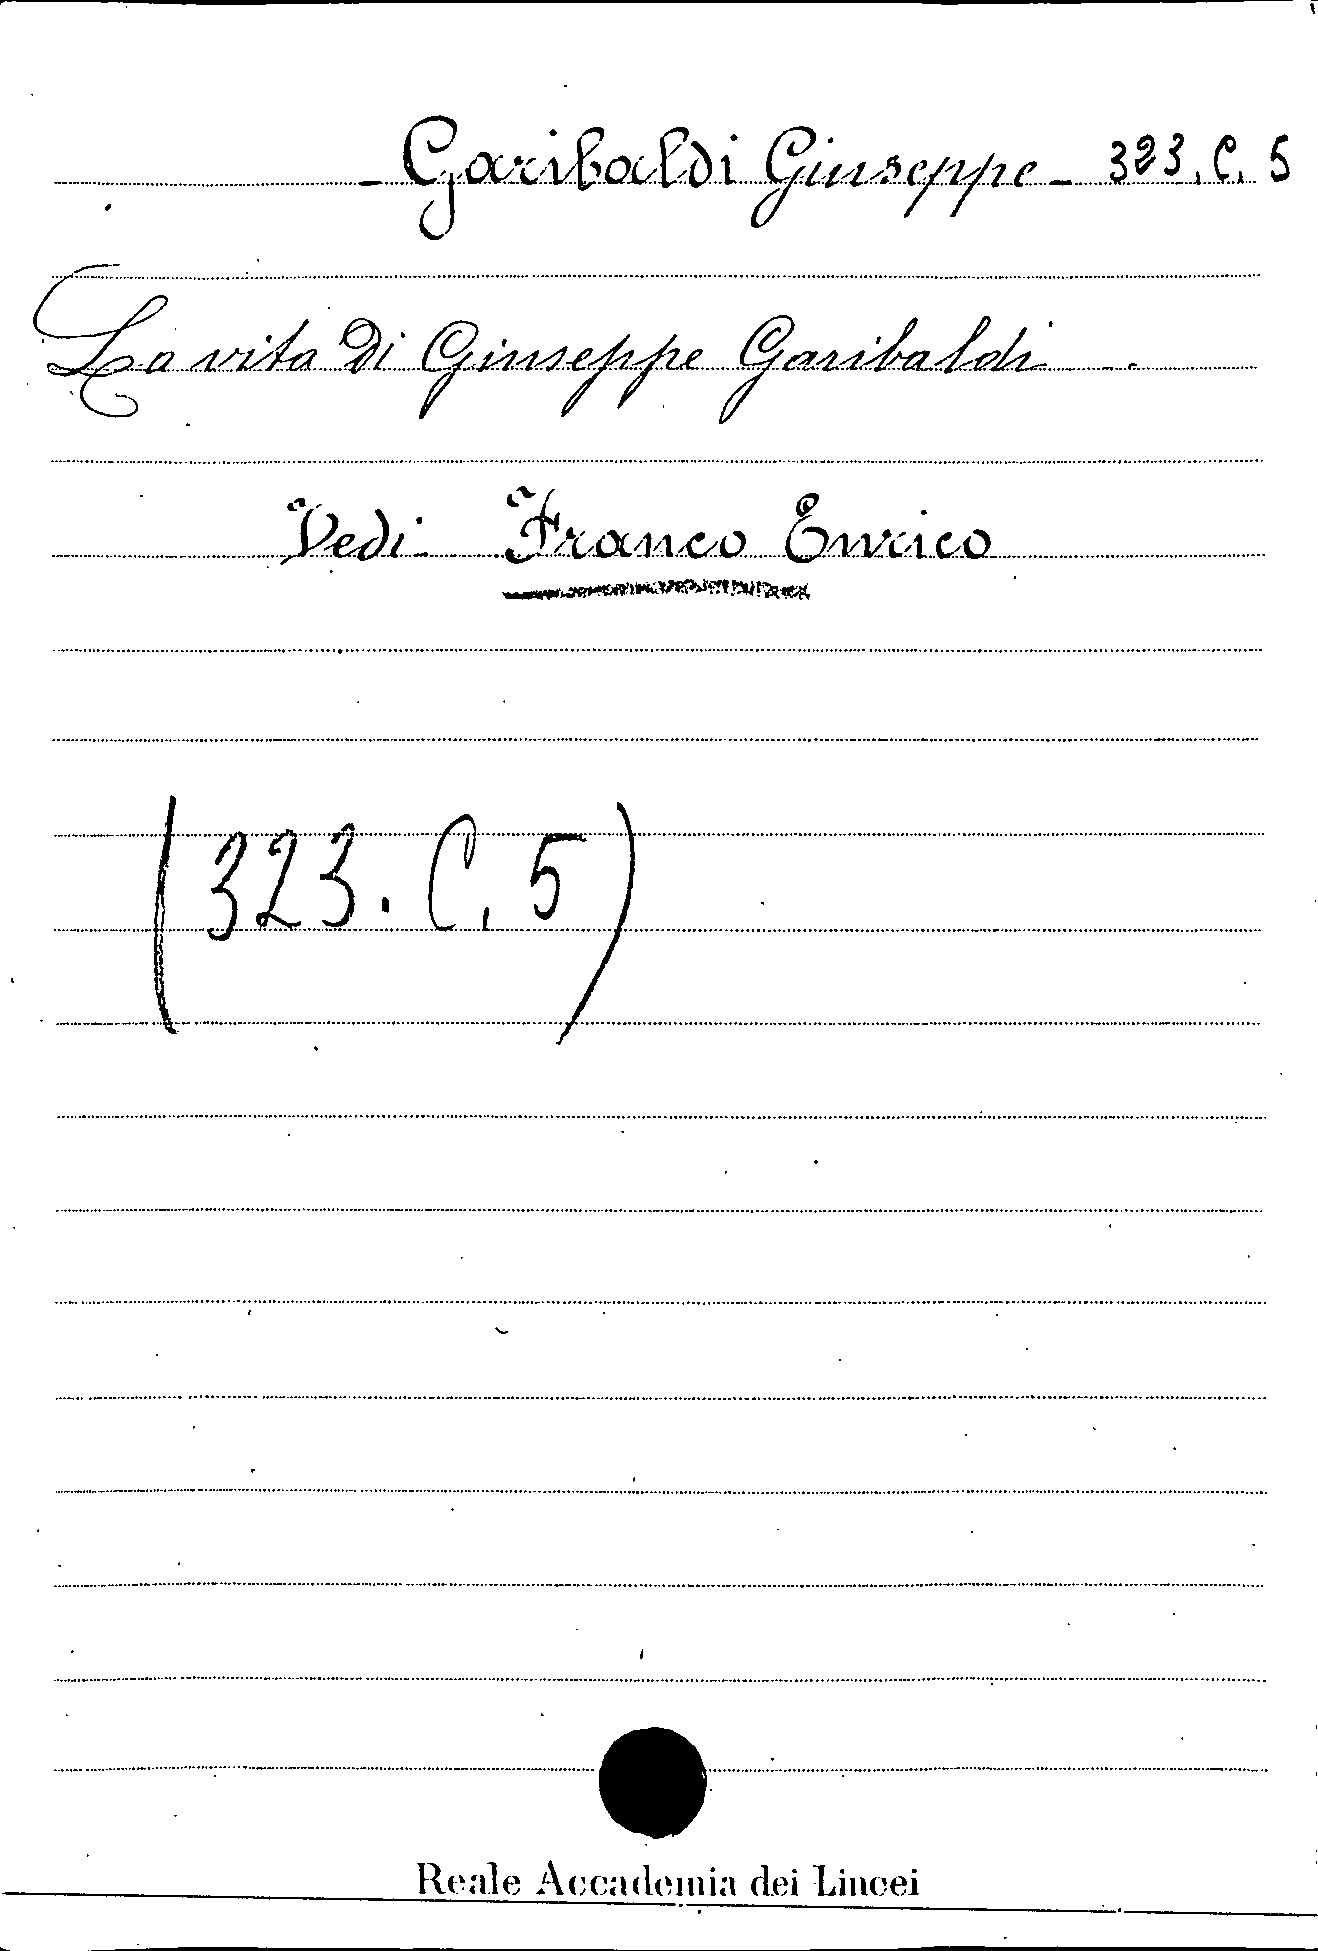 - Garibaldi Giuseppe - 323. C. 5
La vita di Giuseppe Garibaldi
Vedi Franco Enrico
(323. C. 5)
Reale Accademia dei Lincei